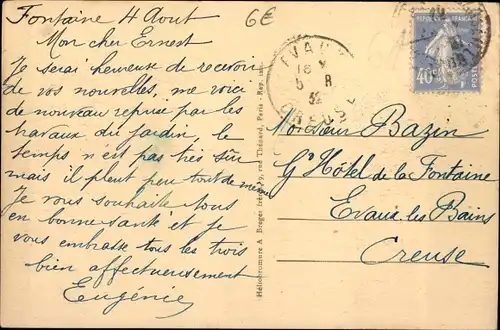 Fontaine 4 Aout
6€
Mon cher Ernest
Je serai heureuse de recevoir
de vos nouvelles, me voici
de nouveau reprise par les
travaux du jardin, le
temps n'est pas très sûr
mais il pleut peu tout de même
Je vous souhaite tous
en bonne santé et je
vous embrasse tous les trois
bien affectueusement
Eugénie
Héliochromure A. Breger frères, 9, rue Thénard, Paris
EVAUX
CREUSE
REPUBLIQUE FRANÇAISE
40
Monsieur Bazin
Gd Hôtel de la Fontaine
Evaux les Bains
Creuse